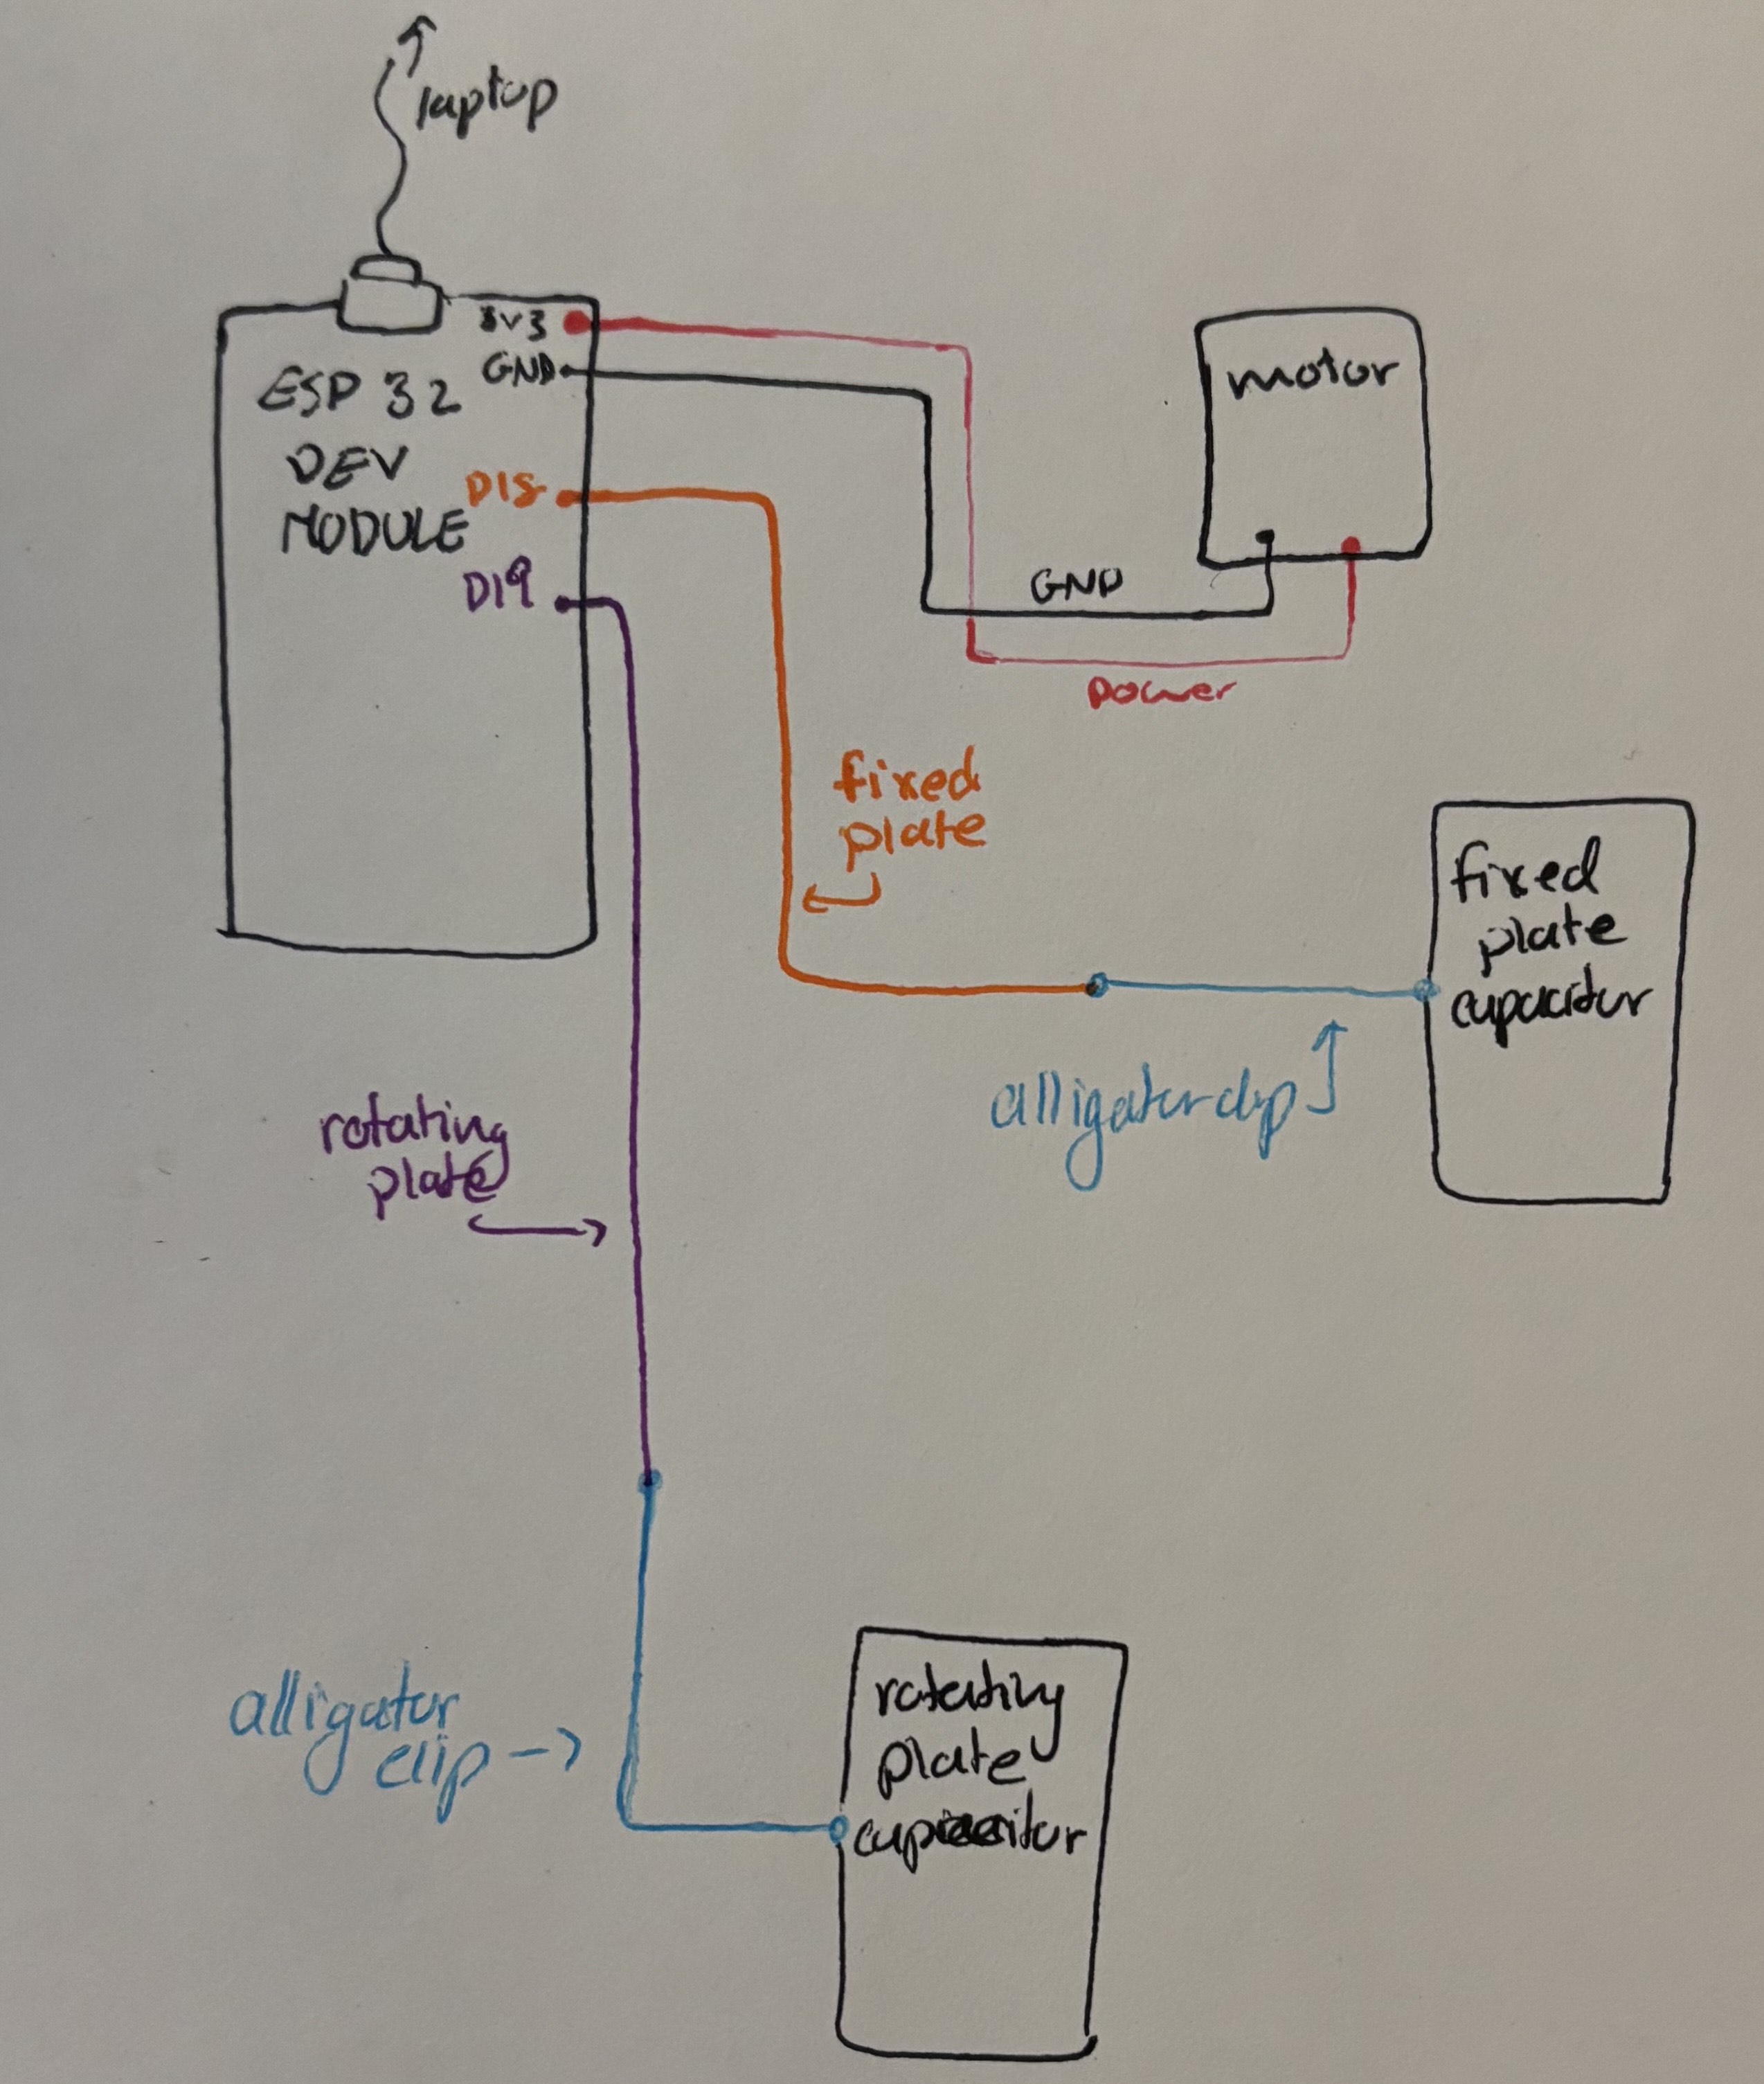 laptop
3v3
GND
ESP 32
DEV
MODULE
D18
D19
motor
GND
power
fixed
plate
fixed
plate
capacitor
alligator clip
rotating
plate
alligator
clip ->
rotating
plate
capacitor